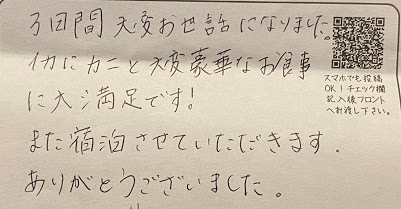 3日間大変お世話になりました。
イカにカニと大変豪華なお食事
に大満足です!
また宿泊させていただきます.
ありがとうございました。
スマホでも投稿
OK!チェック欄
記入後フロント
へお渡し下さい。